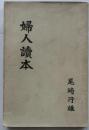 婦人讀本
尾崎行雄